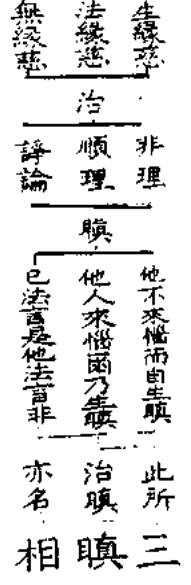 生緣慈
法緣慈
無緣慈
治
非理
順理
諍論
瞋
他不來惱而自生瞋
他人來惱爾乃生瞋
已法言是他法言非
此所
治瞋
亦名
三瞋相